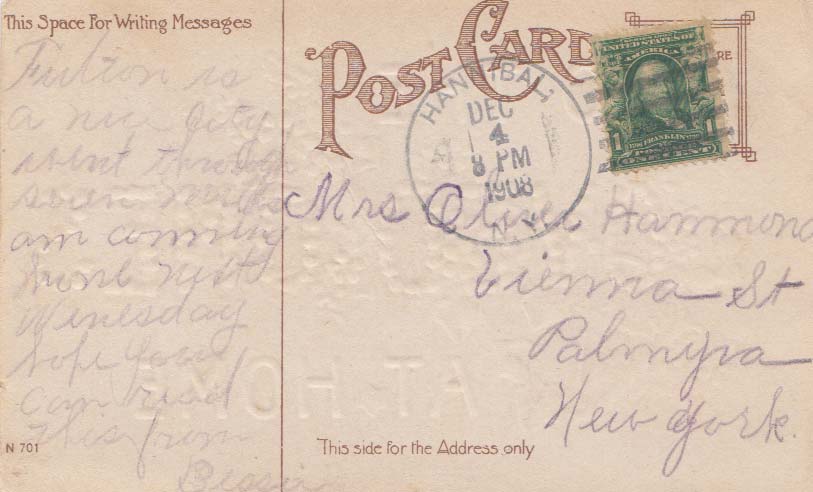 This Space For Writing Messages
POST CARD
UNITED STATES OF AMERICA
1
FRANKLIN
POSTAGE
ONE CENT
RE
HANNIBAL,
DEC
4
8 PM
1908
N.Y.
Fulton is
a nice City
went through
seven
am comming
home next
Wenesday
hope you
can read
this from
Bessie
Mrs Oliver Hammond
Vienna St
Palmyra
New York.
AT HOME
N 701
This side for the Address only